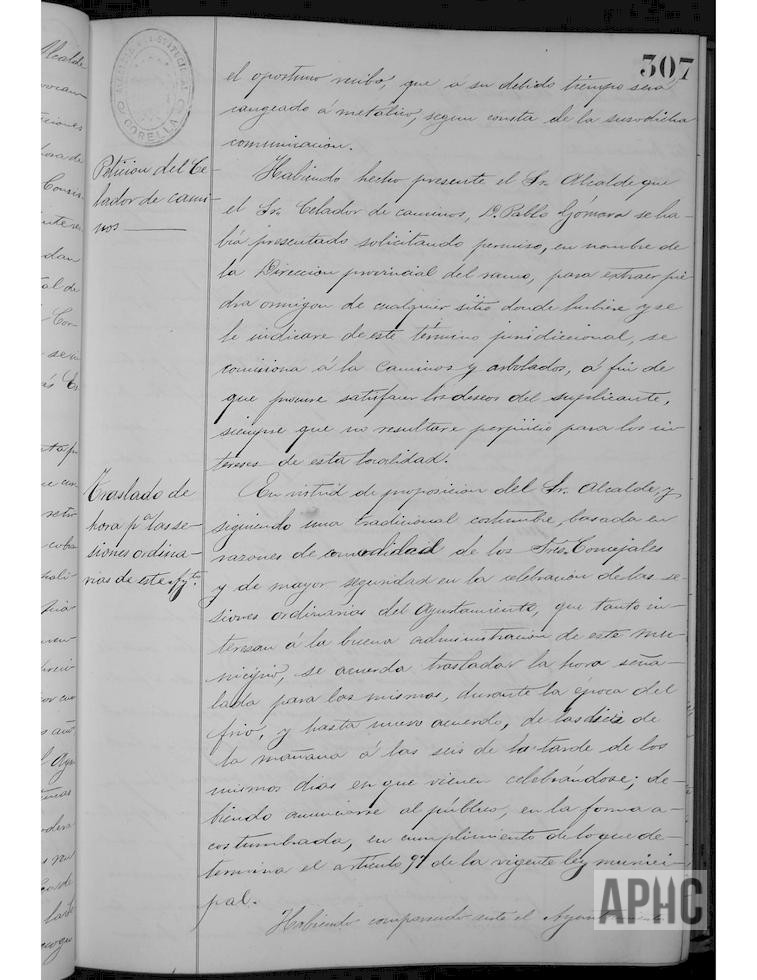 307
ALCALDIA CONSTITUCIONAL
CORELLA
el oportuno recibo, que á su debido tiempo será
cangeado á metálico, segun consta de la susodicha
comunicacion.
Peticion del Ce-
lador de cami-
nos
Habiendo hecho presente el Sr. Alcalde que
el Sr. Celador de caminos, D. Pablo Gómara se ha-
bia presentado solicitando permiso, en nombre de
la Direccion provincial del ramo, para extraer pie-
dra ormigon de cualquier sitio donde hubiere y se
le indicare de este término jurisdiccional, se
comisiona á la Caminos y arbolados, á fin de
que procure satisfacer los deseos del suplicante,
siempre que no resultare perjuicio para los in-
tereses de esta localidad.
Traslado de
hora pª las se-
siones ordina-
rias de este Aytº.
En virtud de proposicion del Sr. Alcalde y
siguiendo una tradicional costumbre basada en
razones de comodidad de los Sres. Concejales
y de mayor seguridad en la celebracion de las se-
siones ordinarias del Ayuntamiento, que tanto in-
teresan á la buena administracion de este mu-
nicipio, se acuerda trasladar la hora seña-
lada para las mismas, durante la época del
frio, y hasta nuevo acuerdo, de las diez de
la mañana á las seis de la tarde de los
mismos dias en que vienen celebrándose; de-
biendo anunciarse al público, en la forma a-
costumbrada, en cumplimiento de lo que de-
termina el artículo 97 de la vigente ley munici-
pal.
Habiendo comparecido ante el Ayuntamiento
APHC